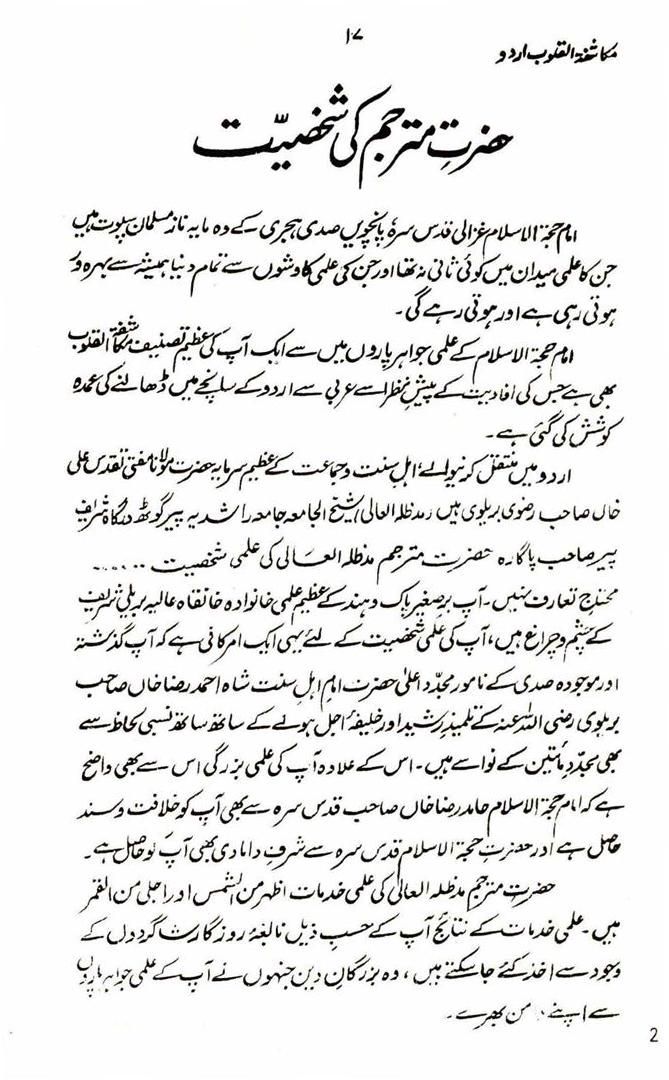 ۱۷
مکاشفۃ القلوب اردو
حضرتِ مترجم کی شخصیّت
امام حجۃ الاسلام غزالی قدس سرہٗ پانچویں صدی ہجری کے وہ مایہ ناز مسلمان سپوت ہیں
جن کا علمی میدان میں کوئی ثانی نہ تھا اور جن کی علمی کاوشوں سے تمام دنیا ہمیشہ سے بہرہ ور
ہوتی رہی ہے اور ہوتی رہے گی۔
امام حجۃ الاسلام کے علمی جواہر پاروں میں سے ایک آپ کی عظیم تصنیف مکاشفۃ القلوب
بھی ہے جس کی افادیت کے پیشِ نظر اسے عربی سے اردو کے سانچے میں ڈھالنے کی عمدہ
کوشش کی گئی ہے۔
اردو میں منتقل کرنیوالے، اہلِ سنت وجماعت کے عظیم سرمایہ حضرت مولانا مفتی تقدس علی
خاں صاحب رضوی بریلوی ہیں (مدظلہ العالی) شیخ الجامعہ جامعہ راشدیہ پیر گوٹھ درگاہ شریف
پیر صاحب پاگارہ حضرت مترجم مدظلہ العالی کی علمی شخصیت ......
محتاج تعارف نہیں۔ آپ برصغیر پاک وہند کے عظیم علمی خانوادہ خانقاہ عالیہ بریلی شریف
کے چشم وچراغ ہیں، آپ کی علمی شخصیت کے لئے یہی ایک امر کافی ہے کہ آپ گذشتہ
اور موجودہ صدی کے نامور مجدد اعلٰی حضرت امام اہلِ سنت شاہ احمد رضا خاں صاحب
بریلوی رضی اللہ عنہ کے تلمیذِ رشید اور خلیفۂ اجل ہونے کے ساتھ ساتھ نسبی لحاظ سے
بھی مجدد مأتین کے نواسے ہیں۔ اس کے علاوہ آپ کی علمی بزرگی اس سے بھی واضح
ہے کہ امام حجۃ الاسلام حامد رضا خاں صاحب قدس سرہ سے بھی آپ کو خلافت وسند
حاصل ہے اور حضرتِ حجۃ الاسلام قدس سرہ سے شرفِ دامادی بھی آپ کو حاصل ہے۔
حضرتِ مترجم مدظلہ العالی کی علمی خدمات اظہر من الشمس اور اجلٰی من القمر
ہیں۔ علمی خدمات کے نتائج آپ کے حسبِ ذیل نابغۂ روزگار شاگردوں کے
وجود سے اخذ کئے جا سکتے ہیں، وہ بزرگانِ دین جنہوں نے آپ کے علمی جواہر پاروں
سے اپنے من بھرے۔
2